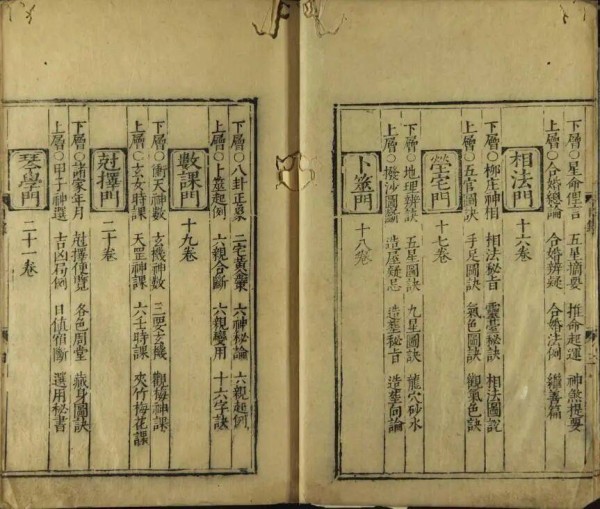 下層○星命 五星摘要 推命起運 神煞提要
上層○合婚總論 合婚辨疑 合婚法例 繼善篇
相法門 十六卷
下層○柳庄神相 相法秘旨 靈臺秘訣 相法圖說
上層○五官圖訣 手足圖訣 氣色圖訣 觀氣色訣
塋宅門 十七卷
下層○地理辨訣 五星圖訣 九星圖訣 龍穴砂水
上層○撥沙圖斷 造屋疑忌 造塟秘旨 造塟向論
卜筮門 十八卷
下層○八卦正 二宅黃 六神秘論 六親起例
上層○卜筮起例 六親合斷 六親變用 十六字訣
數課門 十九卷
下層○衝天神數 玄機神數 三要玄機 觀梅神課
上層○玄女時課 天罡神課 六壬時課 夾竹梅花課
尅擇門 二十卷
下層○諸家年月 尅擇便覽 各色周堂 藏身圖訣
上層○甲子神選 吉凶局例 日值宿斷 選用秘書
琴學門 二十一卷